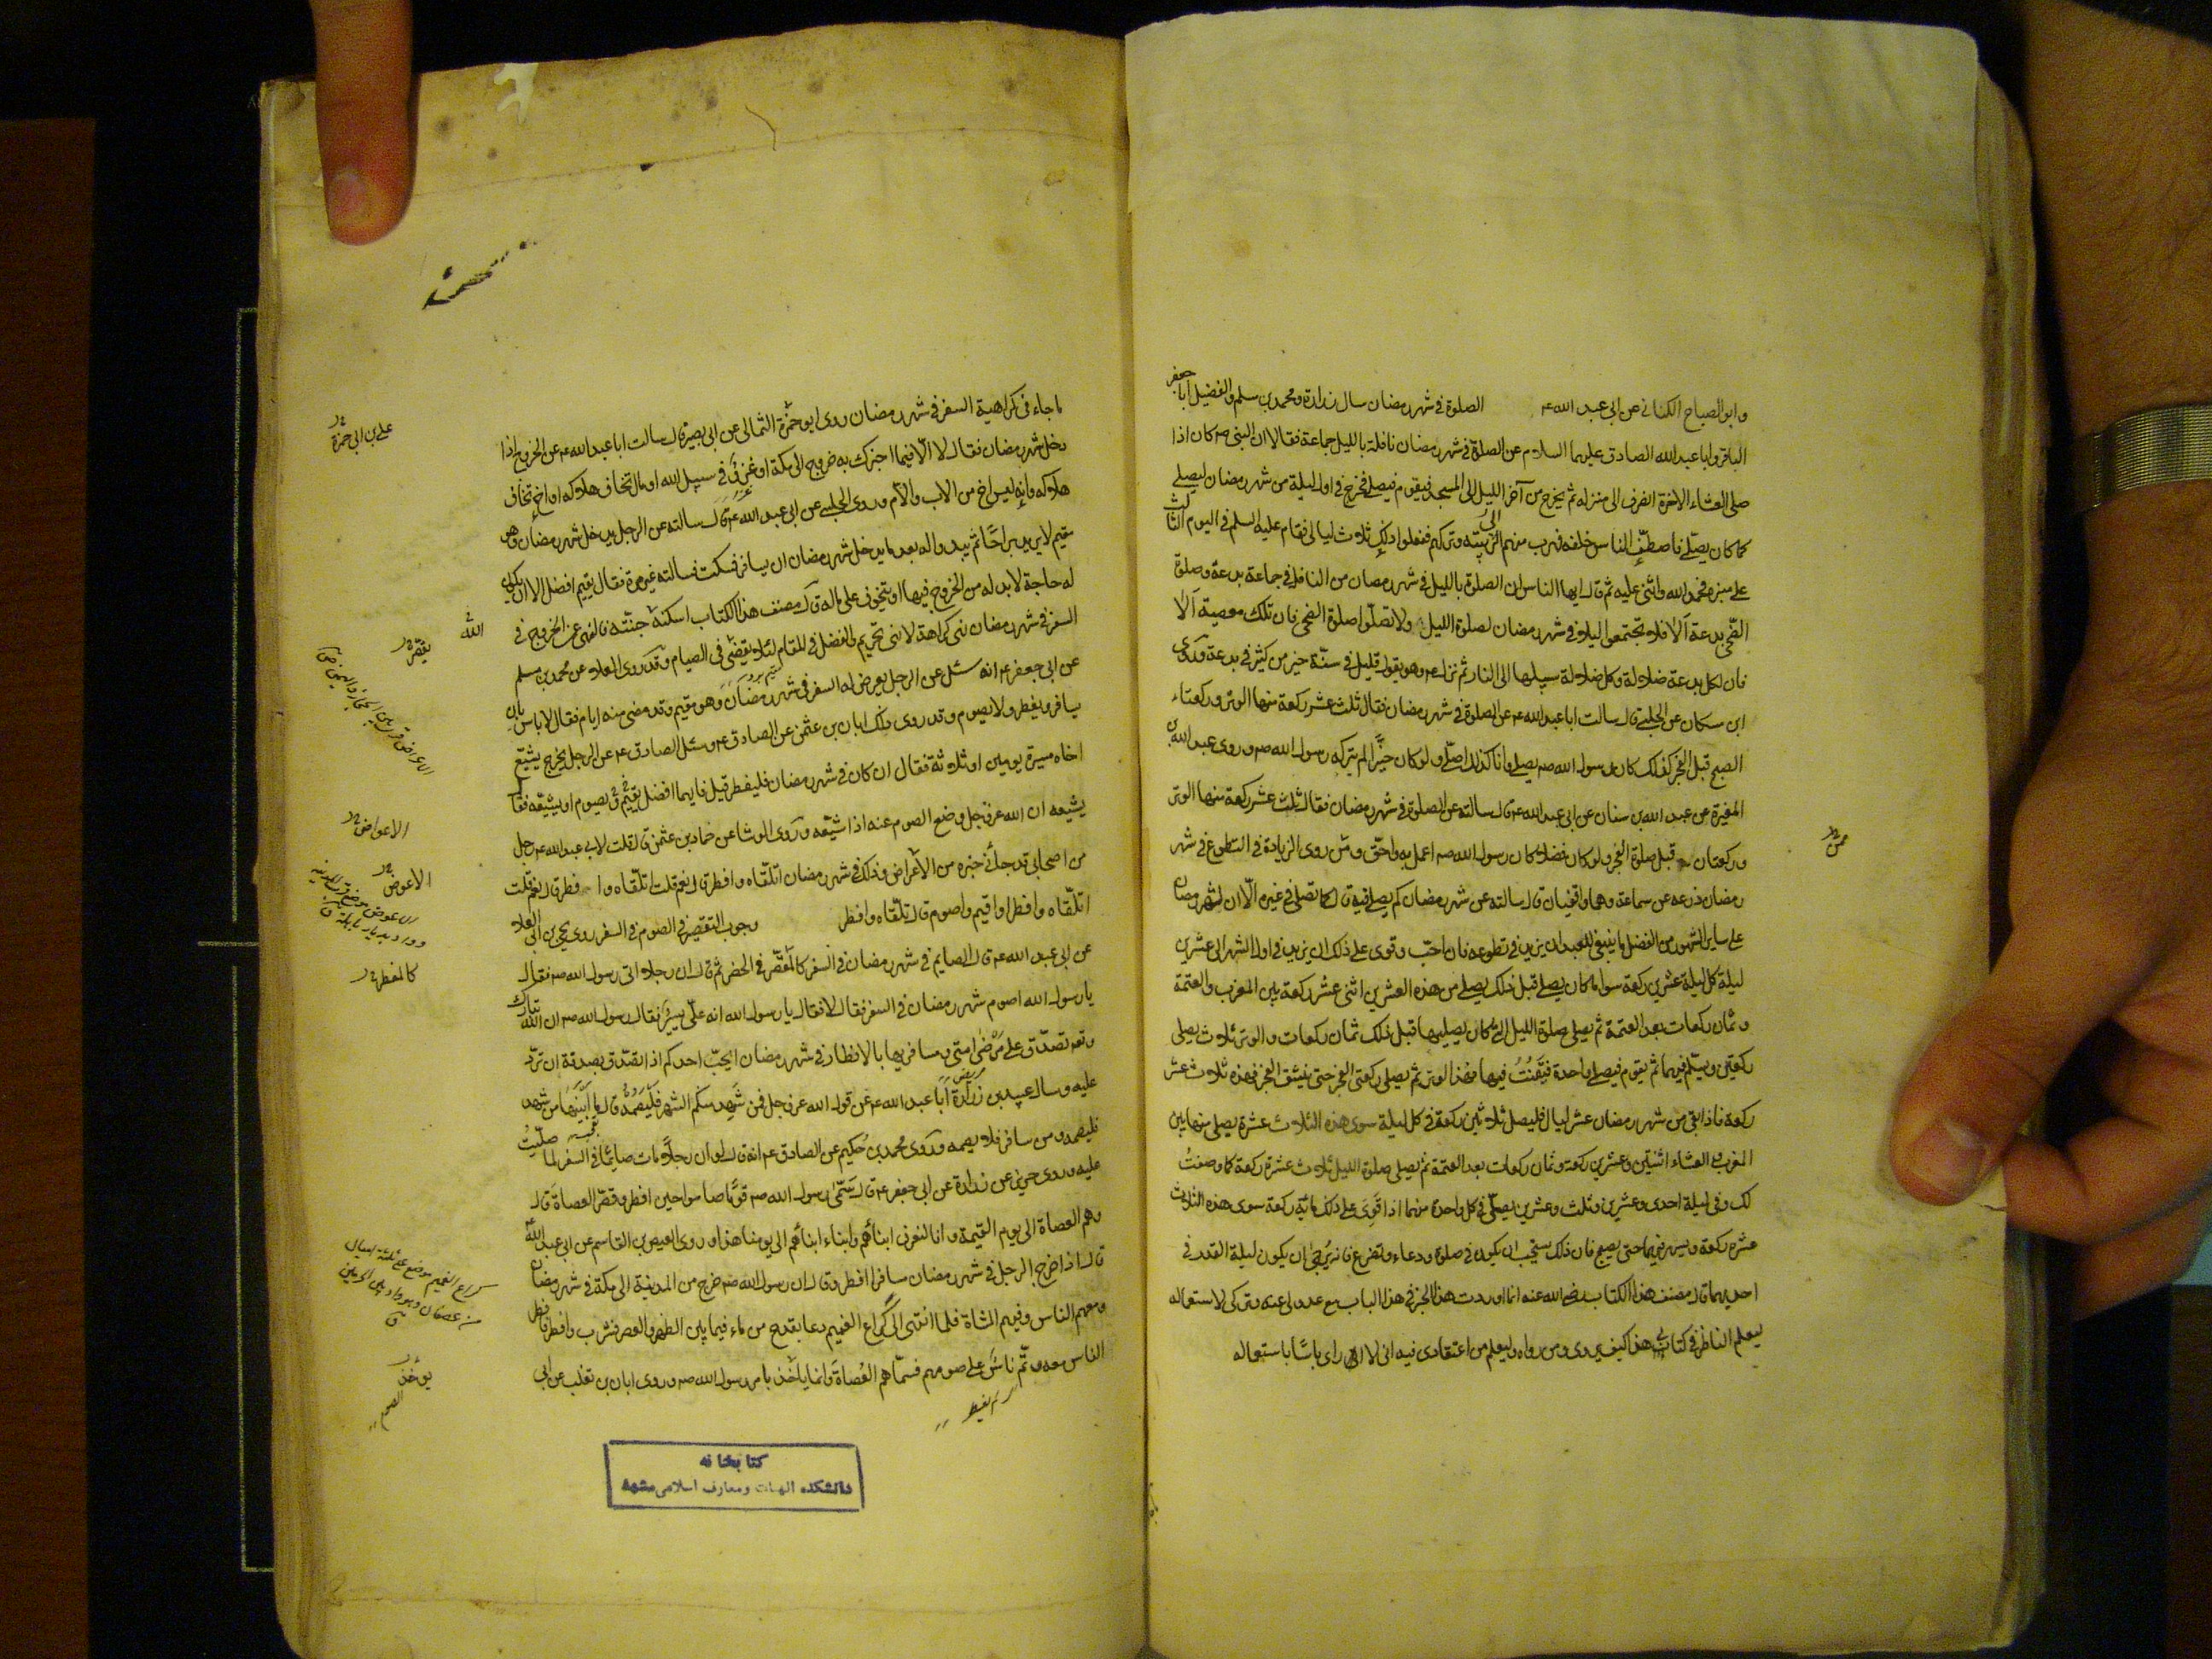 وابو الصباح الكناني عن ابى عبد الله ع الصلوة فى شهر رمضان سال زرارة ومحمد بن مسلم والفضيل ابا جعفر
الباقر وابا عبد الله الصادق عليهما السلام عن الصلوة فى شهر رمضان نافلة بالليل جماعة فقالا ان النبى ص كان اذا
صلى العشاء الاخرة انصرف الى منزله ثم يخرج من آخر الليل الى المسجد فيقوم فيصلى فخرج فى اول ليلة من شهر رمضان ليصلى
كما كان يصلى فاصطف الناس خلفه فهرب منهم الى بيته وتركهم ففعلوا ذلك ثلاث ليالى فقام عليه السلم فى اليوم الثالث
على منبره فحمد الله واثنى عليه ثم قال ايها الناس ان الصلوة بالليل فى شهر رمضان من النافلة فى جماعة بدعة وصلوة
الضحى بدعة الا فلا تجتمعوا ليلا فى شهر رمضان لصلوة الليل ولا تصلوا صلوة الضحى فان تلك معصية الا
فان كل بدعة ضلالة وكل ضلالة سبيلها الى النار ثم نزل ع وهو يقول قليل فى سنة خير من كثير فى بدعة وروى
ابن مسكان عن الحلبى قال سالت ابا عبد الله ع عن الصلوة فى شهر رمضان فقال ثلث عشر ركعة منها الوتر وركعتا
الصبح قبل الفجر كذلك كان رسول الله ص يصلى وانا كذلك اصلى ولو كان خيرا لم يتركه رسول الله ص وروى عبد الله بن
المغيرة عن عبد الله بن سنان عن ابى عبد الله ع قال سالته عن الصلوة فى شهر رمضان فقال ثلث عشر ركعة منها الوتر
وركعتان قبل صلوة الفجر ولو كان فضلا كان رسول الله ص اعمل به واحق وممن روى الزيادة فى التطوع فى شهر
رمضان زرعه عن سماعة وهما واقفيان قال سالته عن شهر رمضان كم يصلى فيه قال كما تصلى فى غيره الا ان لشهر رمضان
على ساير الشهور من الفضل ما ينبغى للعبد ان يزيد فى تطوعه فان احب وقوى على ذلك ان يزيد فى اول الشهر الى عشرين
ليلة كل ليلة عشرين ركعة سوا ما كان يصلى قبل ذلك يصلى من هذه العشرين اثنى عشر ركعة بين المغرب والعتمة
وثمان ركعات بعد العتمة ثم يصلى صلوة الليل التى كان يصليها قبل ذلك ثمان ركعات والوتر ثلاث يصلى
ركعتين ويسلم فيهما ثم يقوم فيصلى واحدة فيقنت فيها فهذا الوتر ثم يصلى ركعتى الفجر حتى ينشق الفجر فهذه ثلاث عشر
ركعة فاذا بقى من شهر رمضان عشر ليال فليصل ثلاثين ركعة فى كل ليلة سوى هذه الثلاث عشرة يصلى منها بين
المغرب والعشاء اثنتين وعشرين ركعة وثمان ركعات بعد العتمة ثم يصلى صلوة الليل ثلاث عشرة ركعة كما وصفت
لك وفى ليلة احدى وعشرين وثلث وعشرين يصلى فى كل واحدة منهما اذا قوى على ذلك مائة ركعة سوى هذه الثلاث
عشرة ركعة وليسهر فيهما حتى يصبح فان ذلك يستحب ان يكون فى صلوة ودعاء وتضرع فانه يرجى ان يكون ليلة القدر فى
احديهما قال مصنف هذا الكتاب رضى الله عنه انما اوردت هذا الخبر فى هذا الباب مع عدولى عنه وتركى لاستعماله
ليعلم الناظر فى كتابى هذا كيف يروى ومن رواه وليعلم من اعتقادى فيه انى لا ارى باسا باستعماله
ممن
ما جاء فى كراهية السفر فى شهر رمضان روى ابو حمزة الثمالى عن ابى بصير قال سالت ابا عبد الله ع عن الخروج اذا
دخل شهر رمضان فقال لا الا فيما اخبرك به خروج الى مكة او غزو فى سبيل الله او مال تخاف هلاكه او اخ تخاف
هلاكه وانه ليس اخ من الاب والام وروى الحلبى عن ابى عبد الله ع قال سالته عن الرجل يدخل شهر رمضان وهو
مقيم لا يريد براحا ثم يبدو له بعد ما يدخل شهر رمضان ان يسافر فسكت فسالته غير مرة فقال يقيم افضل الا ان يكون
له حاجة لابد له من الخروج فيها او يتخوف على ماله قال مصنف هذا الكتاب اسكنه الله جنته فالنهى عن الخروج فى
السفر فى شهر رمضان نهى كراهة لا نهى تحريم والفضل فى المقام لئلا يقضى فى الصيام وقد روى العلاء عن محمد بن مسلم
عن ابى جعفر ع انه سئل عن الرجل يعرض له السفر فى شهر رمضان وهو مقيم وقد مضى منه ايام فقال لا باس بان
يسافر ويفطر ولا يصوم وقد روى ذلك ابان بن عثمن عن الصادق ع وسئل الصادق ع عن الرجل يخرج يشيع
اخاه مسيرة يومين او ثلاثة فقال ان كان فى شهر رمضان فليفطر قيل فايهما افضل يقيم ويصوم او يشيعه فقال
يشيعه ان الله عز وجل وضع الصوم عنه اذا شيعه وروى الوشا عن حماد بن عثمن قال قلت لابى عبد الله ع رجل
من اصحابى قد جاءنى خبره من الاعراض وذلك فى شهر رمضان اتلقاه وافطر قال نعم قلت اتلقاه وافطر قال نعم قلت
اتلقاه وافطر او اقيم واصوم قال تلقاه وافطر وجوب التقصير فى الصوم فى السفر روى يحيى بن ابى العلا
عن ابى عبد الله ع قال الصايم فى شهر رمضان فى السفر كالمقصر فى الحضر ثم قال ان رجلا اتى رسول الله ص فقال
يا رسول الله اصوم شهر رمضان فى السفر فقال لا فقال يا رسول الله انه على يسير فقال رسول الله ص ان الله تبارك
وتع تصدق على مرضى امتى ومسافريها بالافطار فى شهر رمضان ايحب احدكم اذا تصدق بصدقة ان ترد
عليه وسال عبيد بن زرارة ابا عبد الله ع عن قول الله عز وجل فمن شهد منكم الشهر فليصمه قال ما ابينها من شهد
فليصمه ومن سافر فلا يصمه وروى محمد بن حكيم عن الصادق ع انه قال لو ان رجلا مات صائما فى السفر لما صليت
عليه وروى حريز عن زرارة عن ابى جعفر ع قال سمى رسول الله ص قوما صاموا حين افطر وقصر العصاة قال
وهم العصاة الى يوم القيمة وانا لنعرف ابنائهم وابناء ابنائهم الى يومنا هذا وروى العيص بن القاسم عن ابى عبد الله ع
قال اذا خرج الرجل فى شهر رمضان مسافرا افطر وقال ان رسول الله ص خرج من المدينة الى مكة فى شهر رمضان
ومعهم الناس وفيهم المشاة فلما انتهى الى كراع الغميم دعا بقدح من ماء فيما بين الظهر والعصر فشرب وافطر فافطر
الناس معه وتم ناس على صومهم فسماهم العصاة وانما ياخذ بامر رسول الله ص وروى ابان بن تغلب عن ابى
على بن ابى حمزة
الاعواض
الاعوض
كالمفطر
كراع الغميم موضع على ثلثة اميال
من عسفان وهو واد بين الحرمين
يوخذ
كتابخانه
دانشكده الهيات ومعارف اسلامى مشهد